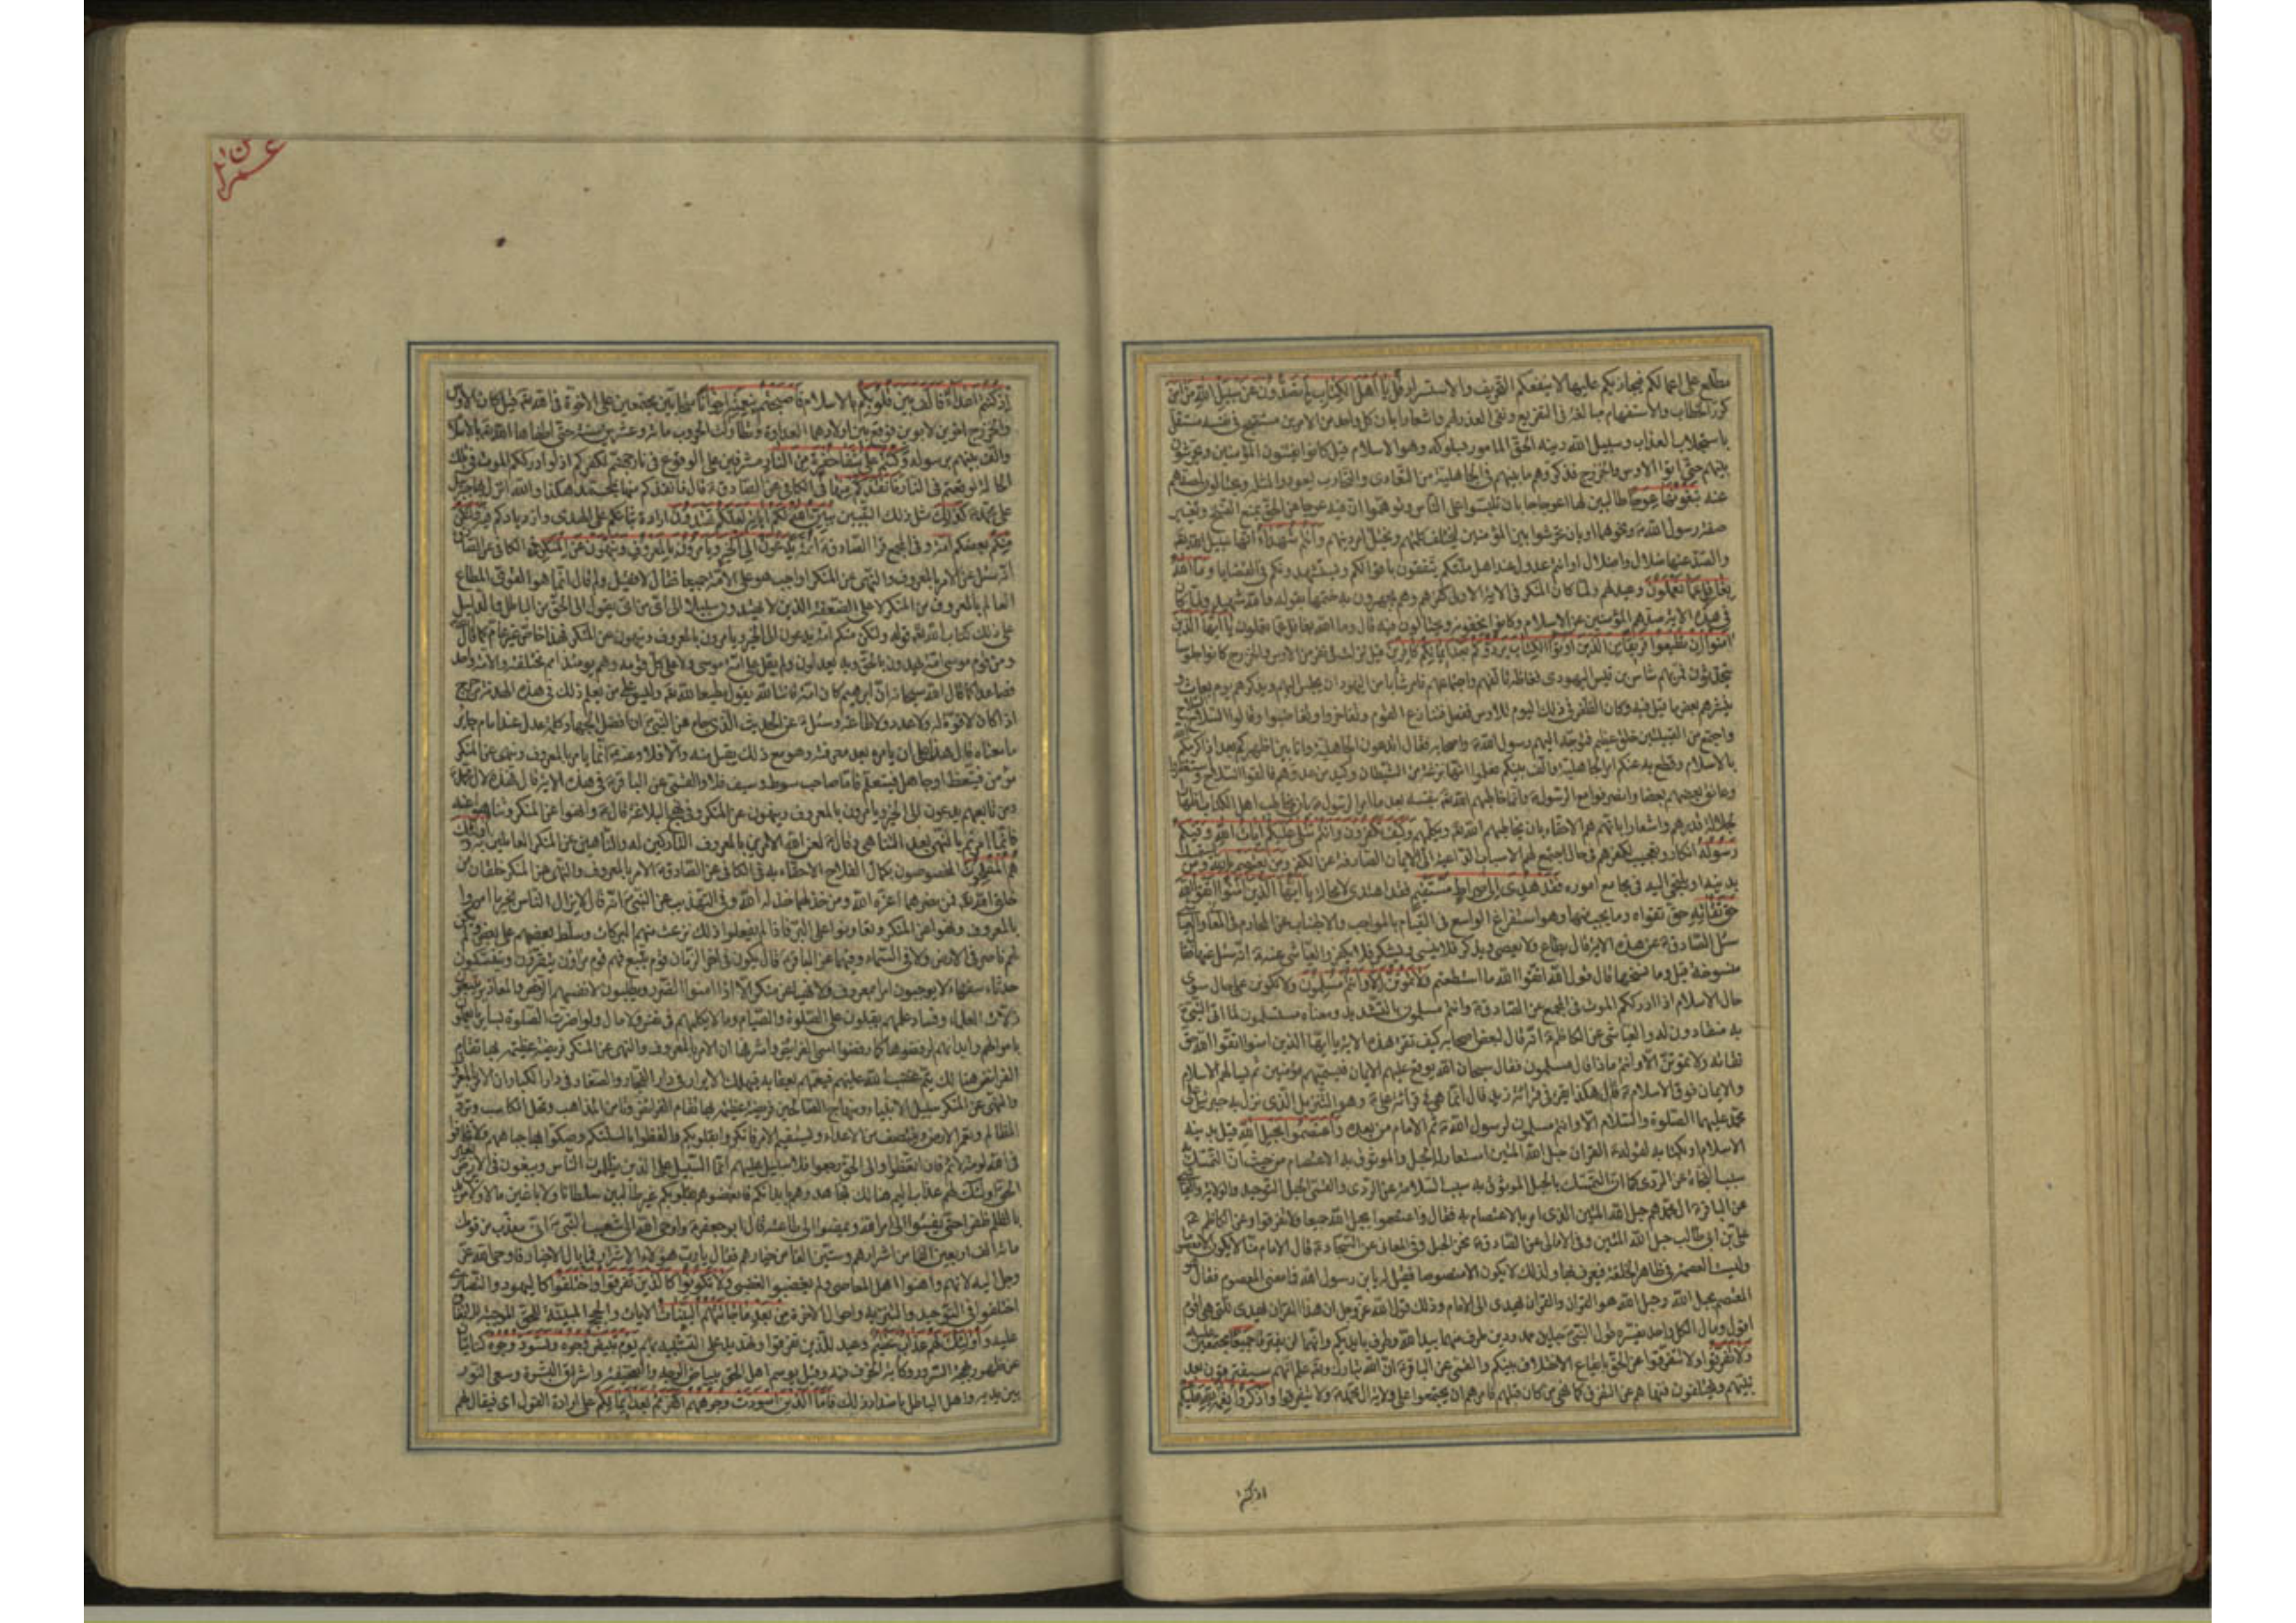 مطلع على اعمالكم فيجازيكم عليها لا ينفعكم التحريف والاستسرار قل يا أهل الكتاب لم تصدون عن سبيل الله من آمن
كرر الخطاب والاستفهام مبالغة فى التقريع ونفى العذر لهم واشعارا بان كل واحد من الامرين مستقبح فى نفسه مستقل
باستجلاب العذاب وسبيل الله دينه الحق المامور بسلوكه وهو الاسلام قيل كانوا يفتنون المؤمنين ويحرشون
بينهم حتى اتوا الاوس والخزرج فذكروهم ما بينهم فى الجاهلية من التعادى والتحارب ليعودوا لمثله ويحتالون لصدهم
عنه تبغونها عوجا طالبين لها اعوجاجا بان تلبسوا على الناس وتوهموا ان فيه عوجا عن الحق بمنع النسخ وتغيير
صفة رسول الله ونحوهما او بان تحرشوا بين المؤمنين ليختلف كلمتهم ويختل امر دينهم وأنتم شهداء انها سبيل الله
والصد عنها ضلال واضلال او انتم عدول عند اهل ملتكم يثقون باقوالكم ويستشهدونكم فى القضايا وما الله
بغافل عما تعملون وعيد لهم ولما كان المنكر فى الاية الاولى كفرهم وهم يجهرون به ختمها بقوله والله شهيد ولما كان
فى هذه الاية صدهم المؤمنين عن الاسلام وكانوا يخفونه ويحتالون فيه قال وما الله بغافل عما تعملون يا أيها الذين
آمنوا إن تطيعوا فريقا من الذين أوتوا الكتاب يردوكم بعد إيمانكم كافرين قيل نزلت فى نفر من الاوس والخزرج كانوا جلوسا
يتحدثون فمر بهم شاس بن قيس اليهودى فغاظه تالفهم واجتماعهم فامر شابا من اليهود ان يجلس اليهم ويذكرهم يوم بعاث و
ينشدهم بعض ما قيل فيه وكان الظفر فى ذلك اليوم للاوس ففعل فتنازع القوم وتفاخروا وتغاضبوا وقالوا السلاح السلاح
واجتمع من القبيلتين خلق عظيم فتوجه اليهم رسول الله واصحابه فقال اتدعون الجاهلية وانا بين اظهركم بعد اذ اكرمكم الله
بالاسلام وقطع به عنكم امر الجاهلية والف بينكم فعلموا انها نزغة من الشيطان وكيد من عدوهم فالقوا السلاح واستغفروا
وعانق بعضهم بعضا وانصرفوا مع الرسول وانما خاطبهم الله بنفسه بعد ما امر الرسول بان يخاطب اهل الكتاب اظهارا
لجلالة قدرهم واشعارا بانهم هم الاحقاء بان يخاطبهم الله ويكلمهم وكيف تكفرون وأنتم تتلى عليكم آيات الله وفيكم
رسوله انكار وتعجيب لكفرهم فى حال اجتمع لهم الاسباب الداعية الى الايمان الصارفة عن الكفر ومن يعتصم بالله ومن يتمسك
بدينه او يلتجئ اليه فى مجامع اموره فقد هدي إلى صراط مستقيم فقد اهتدى لا محالة يا أيها الذين آمنوا اتقوا الله
حق تقاته حق تقواه وما يجب منها وهو استفراغ الوسع فى القيام بالمواجب والاجتناب عن المحارم فى المعانى والعياشى
سئل الصادق عن هذه الاية قال يطاع ولا يعصى ويذكر فلا ينسى ويشكر فلا يكفر والعياشى عنه انه سئل عنها فقال
منسوخة قيل وما نسخها قال قول الله اتقوا الله ما استطعتم ولا تموتن إلا وأنتم مسلمون ولا تكونن على حال سوى
حال الاسلام اذا ادرككم الموت فى المجمع عن الصادق وانتم مسلمون بالتشديد ومعناه مستسلمون لما اتى النبى
به منقادون له والعياشى عن الكاظم انه قال لبعض اصحابه كيف تقرا هذه الاية يا ايها الذين امنوا اتقوا الله حق
تقاته ولا تموتن الا وانتم ماذا قال مسلمون فقال سبحان الله يوقع عليهم الايمان فيسميهم مؤمنين ثم يسالهم الاسلام
والايمان فوق الاسلام قال هكذا يقرا فى قرائة زيد قال انما هى فى قرائة على وهو التنزيل الذى نزل به جبرئيل على
محمد عليهما الصلوة والسلام الا وانتم مسلمون لرسول الله ثم الامام من بعده واعتصموا بحبل الله قيل بدينه
الاسلام او بكتابه لقوله القران حبل الله المتين استعار له الحبل وللوثوق به الاعتصام من حيث ان التمسك به
سبب النجاة عن الردى كما ان التمسك بالحبل الموثوق به سبب السلامة عن التردى والقمى الحبل التوحيد والولاية والعياشى
عن الباقر ال محمد هم حبل الله المتين الذى امر بالاعتصام به فقال واعتصموا بحبل الله جميعا ولا تفرقوا وعن الكاظم
على بن ابى طالب حبل الله المتين وفى الامالى عن الصادق نحن الحبل وفى المعانى عن السجاد قال الامام منا لا يكون الا معصوما
وليست العصمة فى ظاهر الخلقة فيعرف بها ولذلك لا يكون الا منصوصا فقيل له يا بن رسول الله فما معنى المعصوم فقال هو
المعتصم بحبل الله وحبل الله هو القران والقران يهدى الى الامام وذلك قول الله عز وجل ان هذا القران يهدى للتى هى اقوم
اقول ومال الكل واحد يفسره قول النبى حبلين ممدودين طرف منهما بيد الله وطرف بايديكم وانهما لن يفترقا جميعا مجتمعين عليه
ولا تفرقوا ولا تتفرقوا عن الحق بايقاع الاختلاف بينكم والقمى عن الباقر ان الله تبارك وتعالى علم انهم سيفترقون بعد
نبيهم ويختلفون فنهاهم عن التفرق كما نهى من كان قبلهم فامرهم ان يجتمعوا على ولاية ال محمد ولا يتفرقوا واذكروا نعمة الله عليكم
اذ كنتم
عمران
إذ كنتم أعداء فألف بين قلوبكم بالاسلام فأصبحتم بنعمته إخوانا متحابين مجتمعين على الاخوة فى الله قيل كان الاوس
والخزرج اخوين لابوين فوقع بين اولادهما العداوة وتطاولت الحروب مائة وعشرين سنة حتى اطفاها الله بالاسلام
والف بينهم برسوله وكنتم على شفا حفرة من النار مشرفين على الوقوع فى نار جهنم لكفركم اذ لو ادرككم الموت فى تلك
الحالة لوقعتم فى النار فأنقذكم منها فى الكافى عن الصادق قال فانقذكم منها بمحمد هكذا والله انزل بها جبرئيل
على محمد كذلك مثل ذلك التبيين يبين الله لكم آياته لعلكم تهتدون ارادة ثباتكم على الهدى وازديادكم فيه ولتكن
منكم بعضكم أمة وفى المجمع عن الصادق ائمة يدعون إلى الخير ويأمرون بالمعروف وينهون عن المنكر فى الكافى عن الصادق
انه سئل عن الامر بالمعروف والنهى عن المنكر اواجب هو على الامة جميعا فقال لا فقيل ولم قال انما هو على القوى المطاع
العالم بالمعروف من المنكر لا على الضعفة الذين لا يهتدون سبيلا الى اى من اى يقول الى الحق من الباطل والدليل
على ذلك كتاب الله قوله ولتكن منكم امة يدعون الى الخير ويامرون بالمعروف وينهون عن المنكر فهذا خاص غير عام كما قال
ومن قوم موسى امة يهدون بالحق وبه يعدلون ولم يقل على امة موسى ولا على كل قومه وهم يومئذ امم مختلفة والامة واحد
فصاعدا كما قال الله سبحانه ان ابرهيم كان امة قانتا لله يقول مطيعا لله وليس على من يعلم ذلك فى هذه الهدنة من حرج
اذا كان لا قوة له ولا عدد ولا طاعة وسئل عن الحديث الذى جاء عن النبى ان افضل الجهاد كلمة عدل عند امام جائر
ما معناه قال هذا على ان يامره بعد معرفته وهو مع ذلك يقبل منه والا فلا وعنه انما يامر بالمعروف وينهى عن المنكر
مؤمن فيتعظ او جاهل فيتعلم فاما صاحب سوط وسيف فلا والقمى عن الباقر فى هذه الاية قال فهذه لال محمد
ومن تابعهم يدعون الى الخير ويامرون بالمعروف وينهون عن المنكر وفى نهج البلاغة قال وانهوا عن المنكر وتناهوا عنه
فانما امرتم بالنهى بعد التناهى وقال لعن الله الامرين بالمعروف التاركين له والناهين عن المنكر العاملين به وأولئك
هم المفلحون المخصوصون بكمال الفلاح الاحقاء به فى الكافى عن الصادق الامر بالمعروف والنهى عن المنكر خلقان من
خلق الله فمن نصرهما اعزه الله ومن خذلهما خذله الله وفى التهذيب عن النبى انه قال لا يزال الناس بخير ما امروا
بالمعروف ونهوا عن المنكر وتعاونوا على البر فاذا لم يفعلوا ذلك نزعت منهم البركات وسلط بعضهم على بعض ولم يكن
لهم ناصر فى الارض ولا فى السماء وفيهما عن الباقر قال يكون فى اخر الزمان قوم يتبع فيهم قوم مراؤن يتقرؤن ويتنسكون
حدثاء سفهاء لا يوجبون امرا بمعروف ولا نهيا عن منكر الا اذا امنوا الضرر ويطلبون لانفسهم الرخص والمعاذير يتبعون
زلات العلماء وفساد علمهم يقبلون على الصلوة والصيام وما لا يكلمهم فى نفس ولا مال ولو اضرت الصلوة بساير ما يعملون
باموالهم وابدانهم لرفضوها كما رفضوا اسمى الفرائض واشرفها ان الامر بالمعروف والنهى عن المنكر فريضة عظيمة بها تقام
الفرائض هنالك يتم غضب الله عليهم فيعمهم بعقابه فيهلك الابرار فى دار الفجار والصغار فى دار الكبار ان الامر بالمعروف
والنهى عن المنكر سبيل الانبياء ومنهاج الصالحين فريضة عظيمة بها تقام الفرائض وتامن المذاهب وتحل المكاسب وترد
المظالم وتعمر الارض وينتصف من الاعداء ويستقيم الامر فانكروا بقلوبكم والفظوا بالسنتكم وصكوا بها جباههم ولا تخافوا
فى الله لومة لائم فان اتعظوا والى الحق رجعوا فلا سبيل عليهم انما السبيل على الذين يظلمون الناس ويبغون فى الارض بغير
الحق اولئك لهم عذاب اليم هنالك فجاهدوهم بابدانكم وابغضوهم بقلوبكم غير طالبين سلطانا ولا باغين مالا ولا مريدين
بالظلم ظفرا حتى يفيئوا الى امر الله ويمضوا الى طاعته قال ابو جعفر واوحى الله الى شعيب النبى انى معذب من قومك
مائة الف اربعين الفا من اشرارهم وستين الفا من خيارهم فقال يا رب هؤلاء الاشرار فما بال الاخيار فاوحى الله عز
وجل اليه لانهم داهنوا اهل المعاصى ولم يغضبوا لغضبى ولا تكونوا كالذين تفرقوا واختلفوا كاليهود والنصارى
اختلفوا فى التوحيد والتنزيه واحوال الاخرة من بعد ما جاءتهم البينات الايات والحجج المبينة للحق الموجبة للاتفاق
عليه وأولئك لهم عذاب عظيم وعيد للذين تفرقوا وتهديد على التشبه بهم يوم تبيض وجوه وتسود وجوه كنايتان
عن ظهور بهجة السرور وكآبة الخوف فيه وقيل يوسم اهل الحق ببياض الوجه والصحيفة واشراق البشرة وسعى النور
بين يديه واهل الباطل باضداد ذلك فأما الذين اسودت وجوههم أكفرتم بعد إيمانكم على ارادة القول اى فيقال لهم